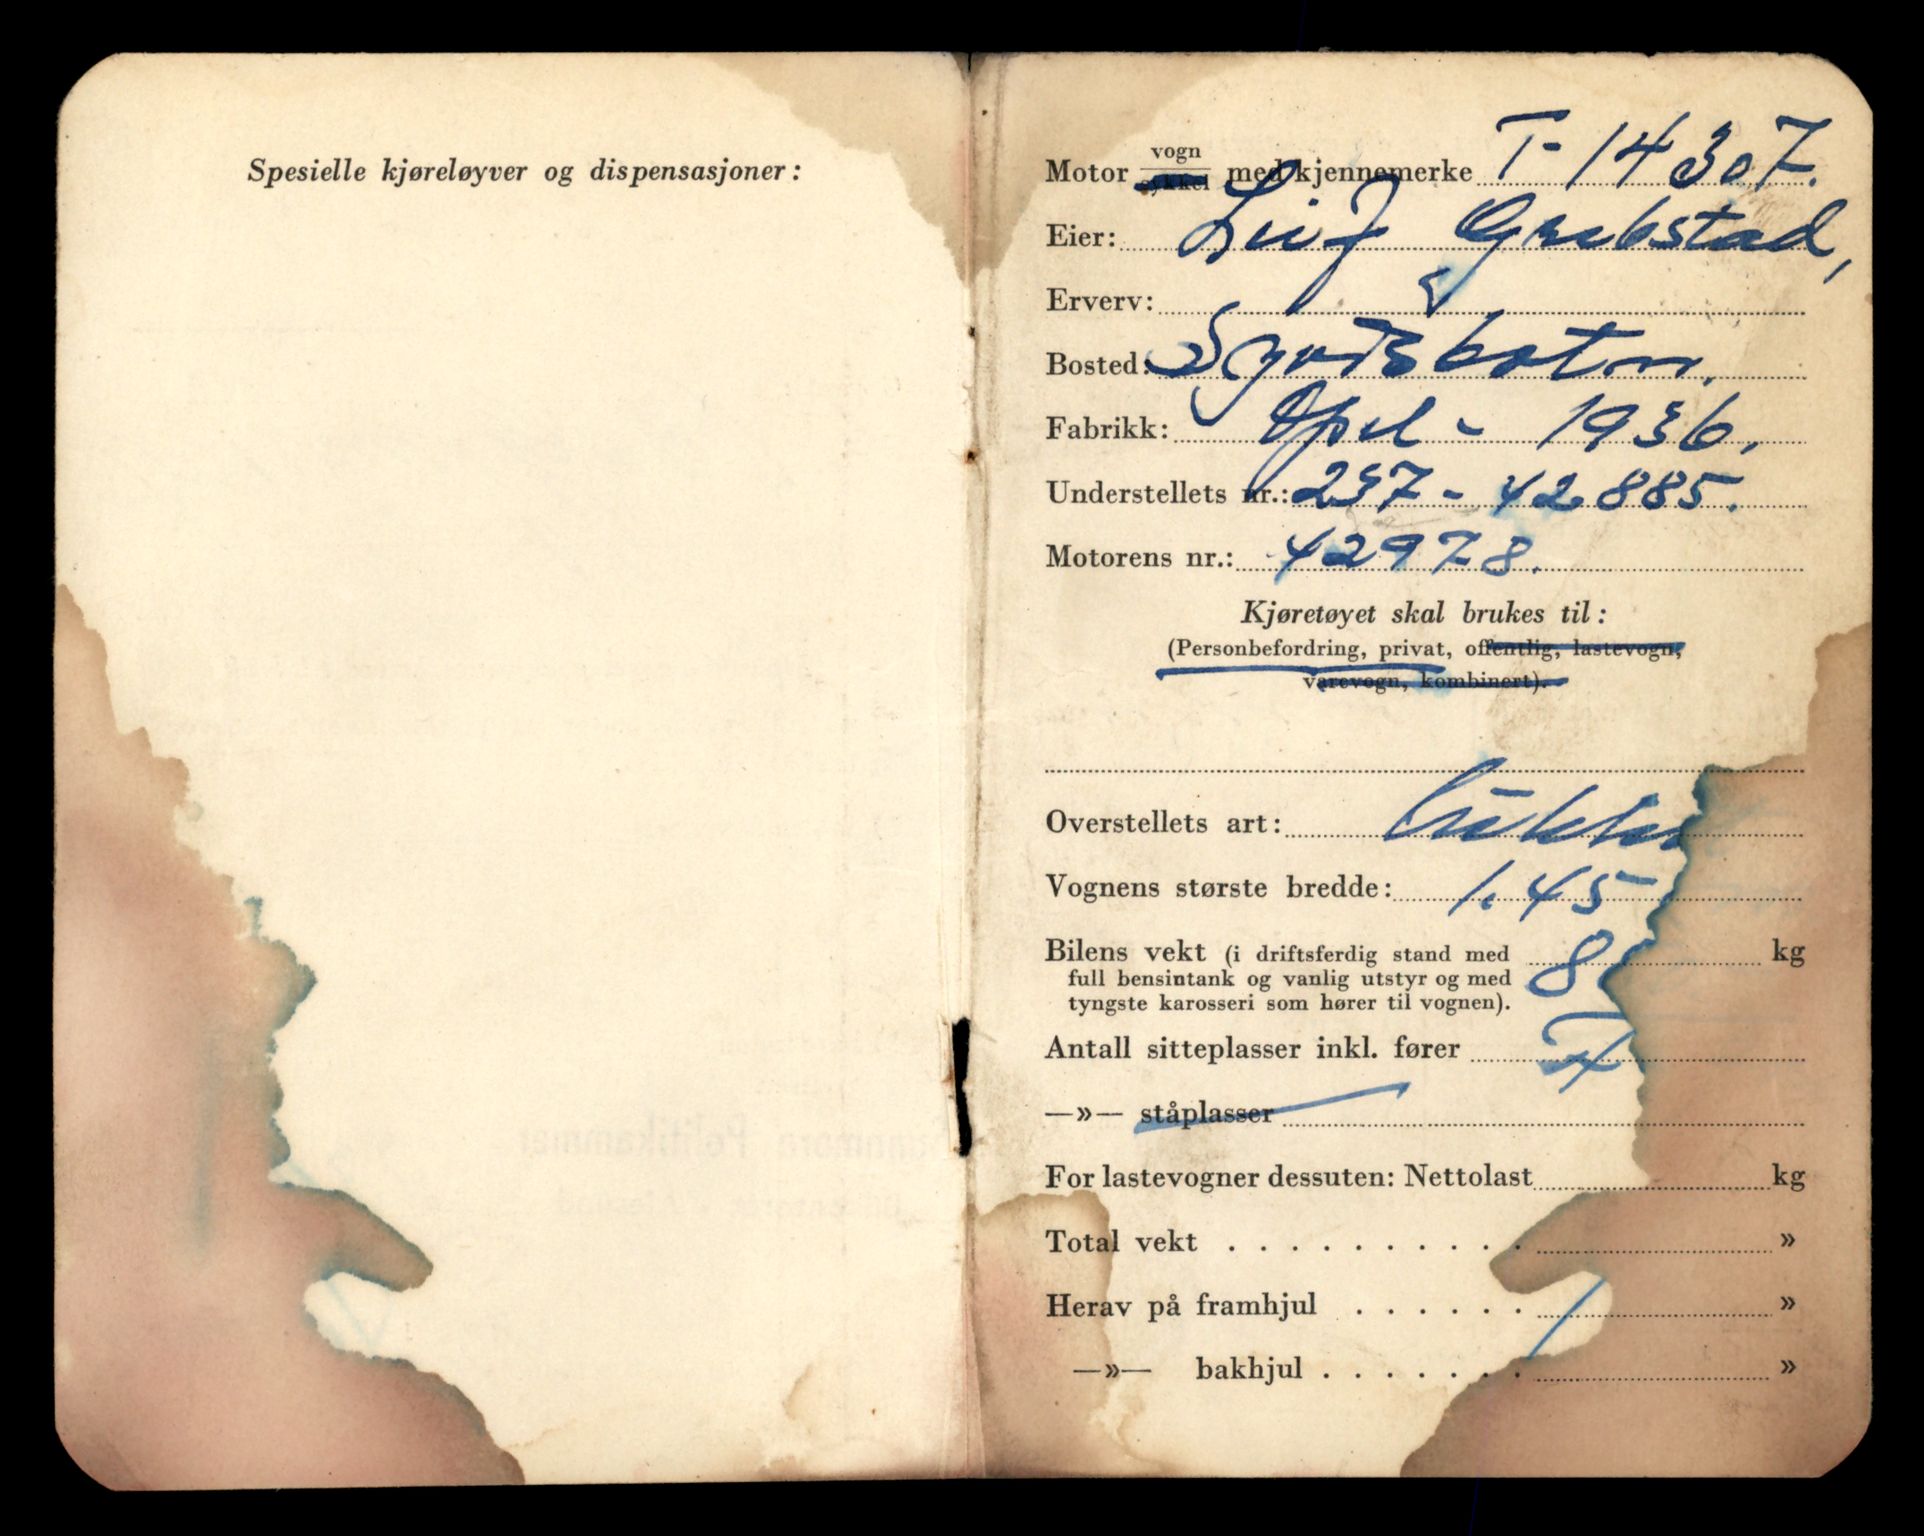 Spesielle kjøreløyver og dispensasjoner:
Motor vogn sykkel med kjennemerke T-14307.
Eier: Leif Grebstad,
Erverv:
Bosted:
Fabrikk: Opel - 1936.
Understellets nr.: 237-42885.
Motorens nr.: 42978.
Kjøretøyet skal brukes til:
(Personbefordring, privat, offentlig, lastevogn,
varevogn, kombinert).
Overstellets art: lukket
Vognens største bredde: 1.45
Bilens vekt (i driftsferdig stand med kg
full bensintank og vanlig utstyr og med
tyngste karosseri som hører til vognen).
Antall sitteplasser inkl. fører 4
—»— ståplasser
For lastevogner dessuten: Nettolast kg
Total vekt . . . . . . . . . . »
Herav på framhjul . . . . . . »
—»— bakhjul . . . . . . . »